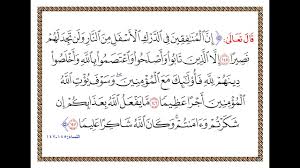 قال تعالى: إِنَّ الْمُنَافِقِينَ فِي الدَّرْكِ الْأَسْفَلِ مِنَ النَّارِ وَلَن تَجِدَ لَهُمْ
نَصِيرًا ﴿١٤٥﴾ إِلَّا الَّذِينَ تَابُوا وَأَصْلَحُوا وَاعْتَصَمُوا بِاللَّهِ وَأَخْلَصُوا
دِينَهُمْ لِلَّهِ فَأُولَٰئِكَ مَعَ الْمُؤْمِنِينَ وَسَوْفَ يُؤْتِ اللَّهُ
الْمُؤْمِنِينَ أَجْرًا عَظِيمًا ﴿١٤٦﴾ مَّا يَفْعَلُ اللَّهُ بِعَذَابِكُمْ إِن
شَكَرْتُمْ وَآمَنتُمْ وَكَانَ اللَّهُ شَاكِرًا عَلِيمًا ﴿١٤٧﴾
النساء: ١٤٥ - ١٤٧